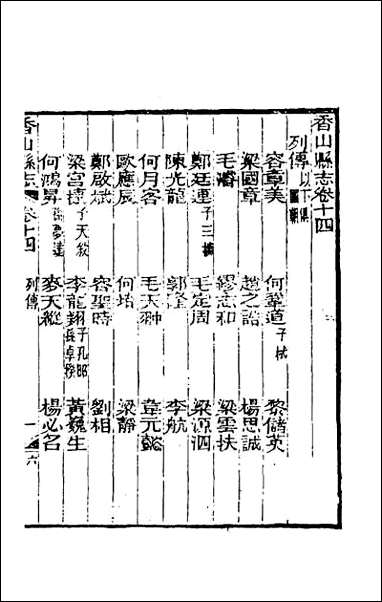 香山縣志卷十四
列傳以下俱國朝
容章美 何準道子栻 黎儲英
梁國章 趙之誥 楊思誠
毛潘 繆志和 梁雲扶
鄭廷運子三 毛定周 梁源泗
陳光龍 郭隆 李航
何月客 毛天翀 韋元懿
歐應辰 何培 梁靜
鄭啟斌 容聖時 劉相
梁宮標子天敘 李龍翔子孔昭 黃巍生
何鴻昇 麥天縱 楊必名
香山縣志 卷十四 列傳 一